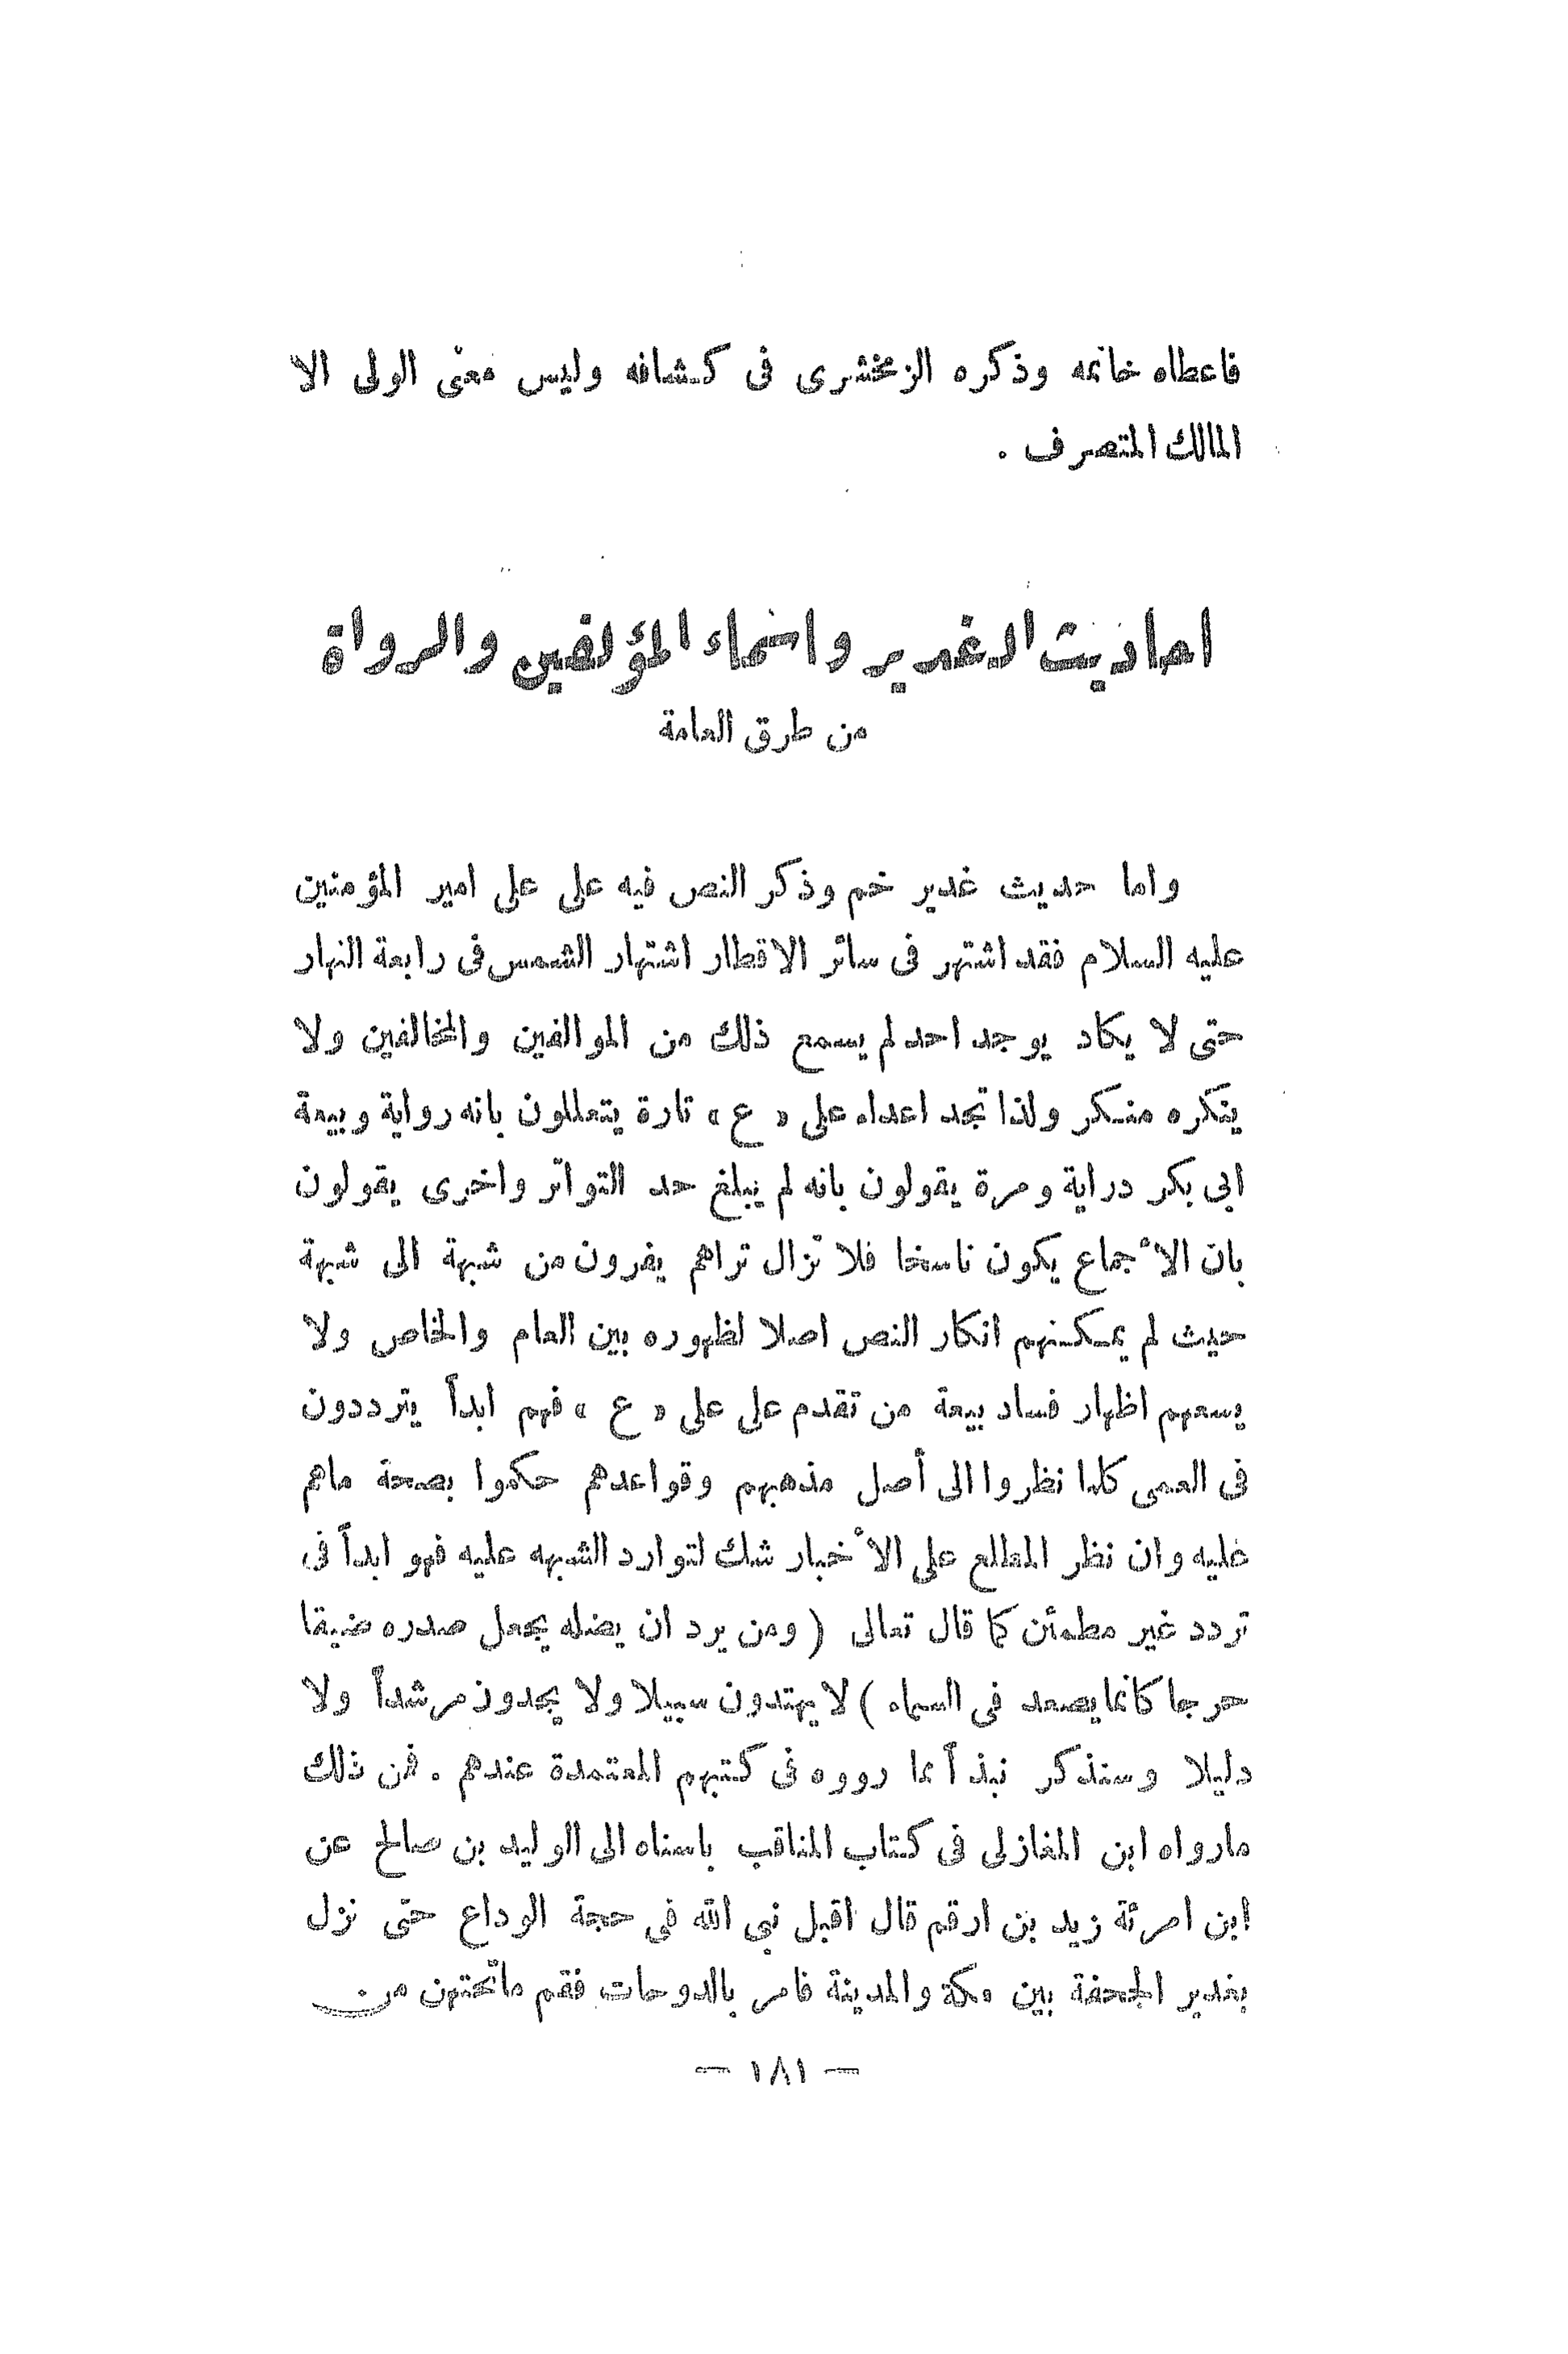 فاعطاه خاتمه وذكره الزمخشرى فى كشافه وليس معنى الولى الا
المالك المتصرف .
احاديث الغدير واسماء المؤلفين والرواة
من طرق العامة
واما حديث غدير خم وذكر النص فيه على على امير المؤمنين
عليه السلام فقد اشتهر فى سائر الاقطار اشتهار الشمس فى رابعة النهار
حتى لا يكاد يوجد احد لم يسمع ذلك من الموالفين والمخالفين ولا
ينكره منكر ولذا تجد اعداء على « ع » تارة يتعللون بانه رواية وبيعة
ابى بكر دراية ومرة يقولون بانه لم يبلغ حد التواتر واخرى يقولون
بان الأجماع يكون ناسخا فلا تزال تراهم يفرون من شبهة الى شبهة
حيث لم يمكنهم انكار النص اصلا لظهوره بين العام والخاص ولا
يسعهم اظهار فساد بيعة من تقدم على على « ع » فهم ابداً يترددون
فى العمى كلما نظروا الى أصل مذهبهم وقواعدهم حكموا بصحة ماهم
عليه وان نظر المطلع على الأخبار شك لتوارد الشبهه عليه فهو ابداً فى
تردد غير مطمئن كما قال تعالى ( ومن يرد ان يضله يجعل صدره ضيقا
حرجا كانما يصعد فى السماء ) لا يهتدون سبيلا ولا يجدون مرشداً ولا
دليلا وسنذكر نبذاً مما رووه فى كتبهم المعتمدة عندهم . فمن ذلك
مارواه ابن المغازلى فى كتاب المناقب باسناه الى الوليد بن صالح عن
ابن امرئة زيد بن ارقم قال اقبل نبي الله فى حجة الوداع حتى نزل
بغدير الجحفة بين مكة والمدينة فامر بالدوحات فقم ماتحتهن من
— ١٨١ —